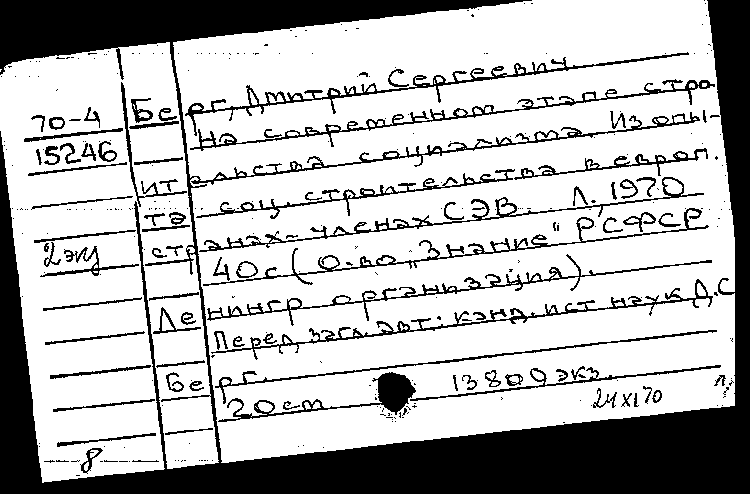 Берг, Дмитрий Сергеевич.
70-4
На современном этапе стро
15246
ительства социализма. Из опы-
та соц. строительства в европ.
2 экз
странах-членах СЭВ. Л., 1970
40с (О-во „Знание" РСФСР
Ленингр организация).
Перед загл. авт.: канд. ист наук Д.С
Берг.
20 cm 13800 экз.
24 XI 70 п.
8